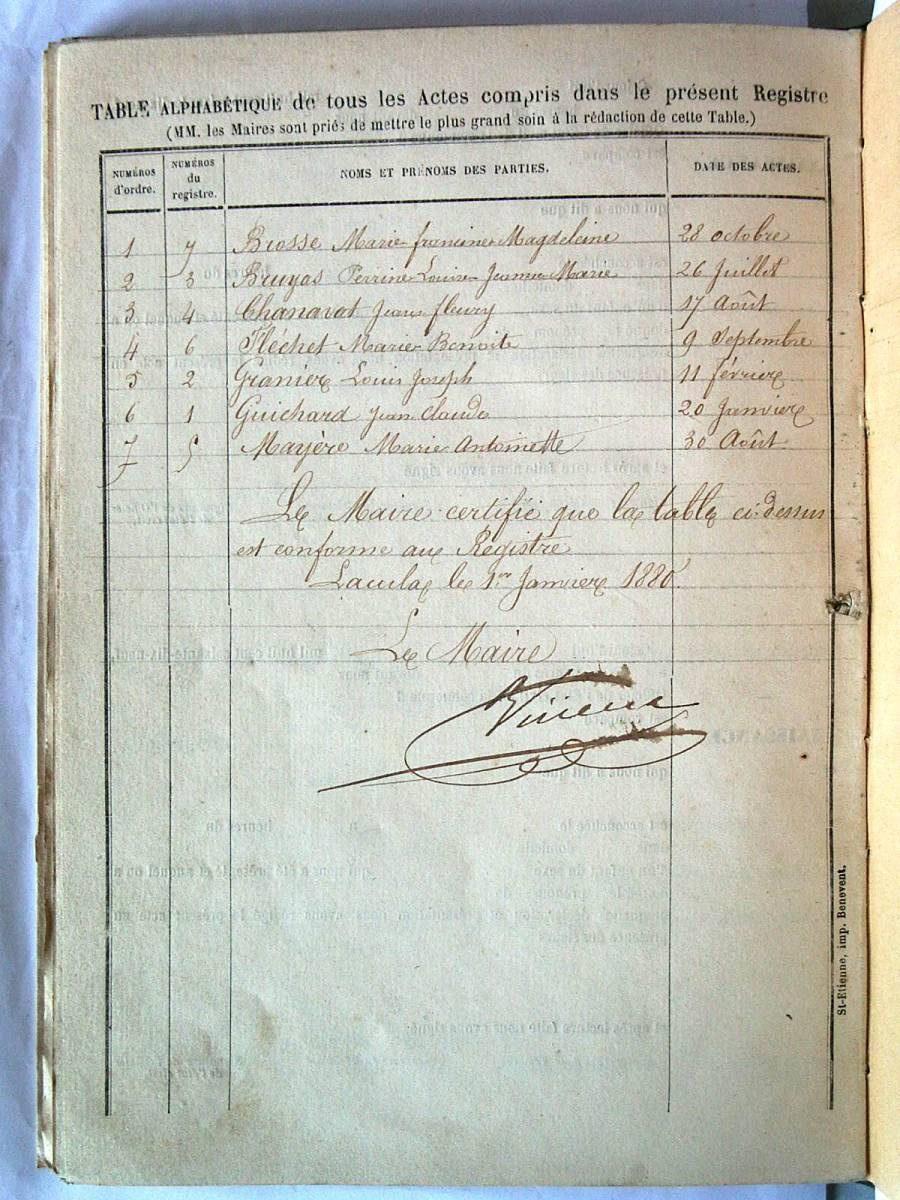 TABLE ALPHABÉTIQUE de tous les Actes compris dans le présent Registre
(MM. les Maires sont priés de mettre le plus grand soin à la rédaction de cette Table.)
NUMÉROS d'ordre. NUMÉROS du registre. NOMS ET PRÉNOMS DES PARTIES. DATE DES ACTES.
1 7 Brosse Marie francine Magdeleine 28 octobre
2 3 Bruyas Perrine Louise Jeanne Marie 26 Juillet
3 4 Chanavat Jean fleury 17 Août
4 6 Fléchet Marie Benoite 9 Septembre
5 2 Granier Louis Joseph 11 février
6 1 Guichard Jean Claude 20 Janvier
7 5 Mayère Marie Antoinette 30 Août
Le Maire certifie que la table ci-dessus
est conforme au Registre
le 1er Janvier 1880
Le Maire
St-Etienne, imp. Benevent.